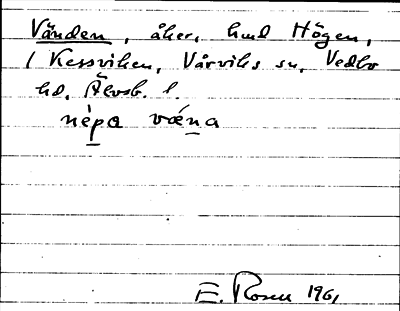 Vänden, åker, hmd Högen,
/ Kessviken, Vårviks sn, Vedbo
hd, Älvsb. l.
nèpa væna
E. Rosen 1961